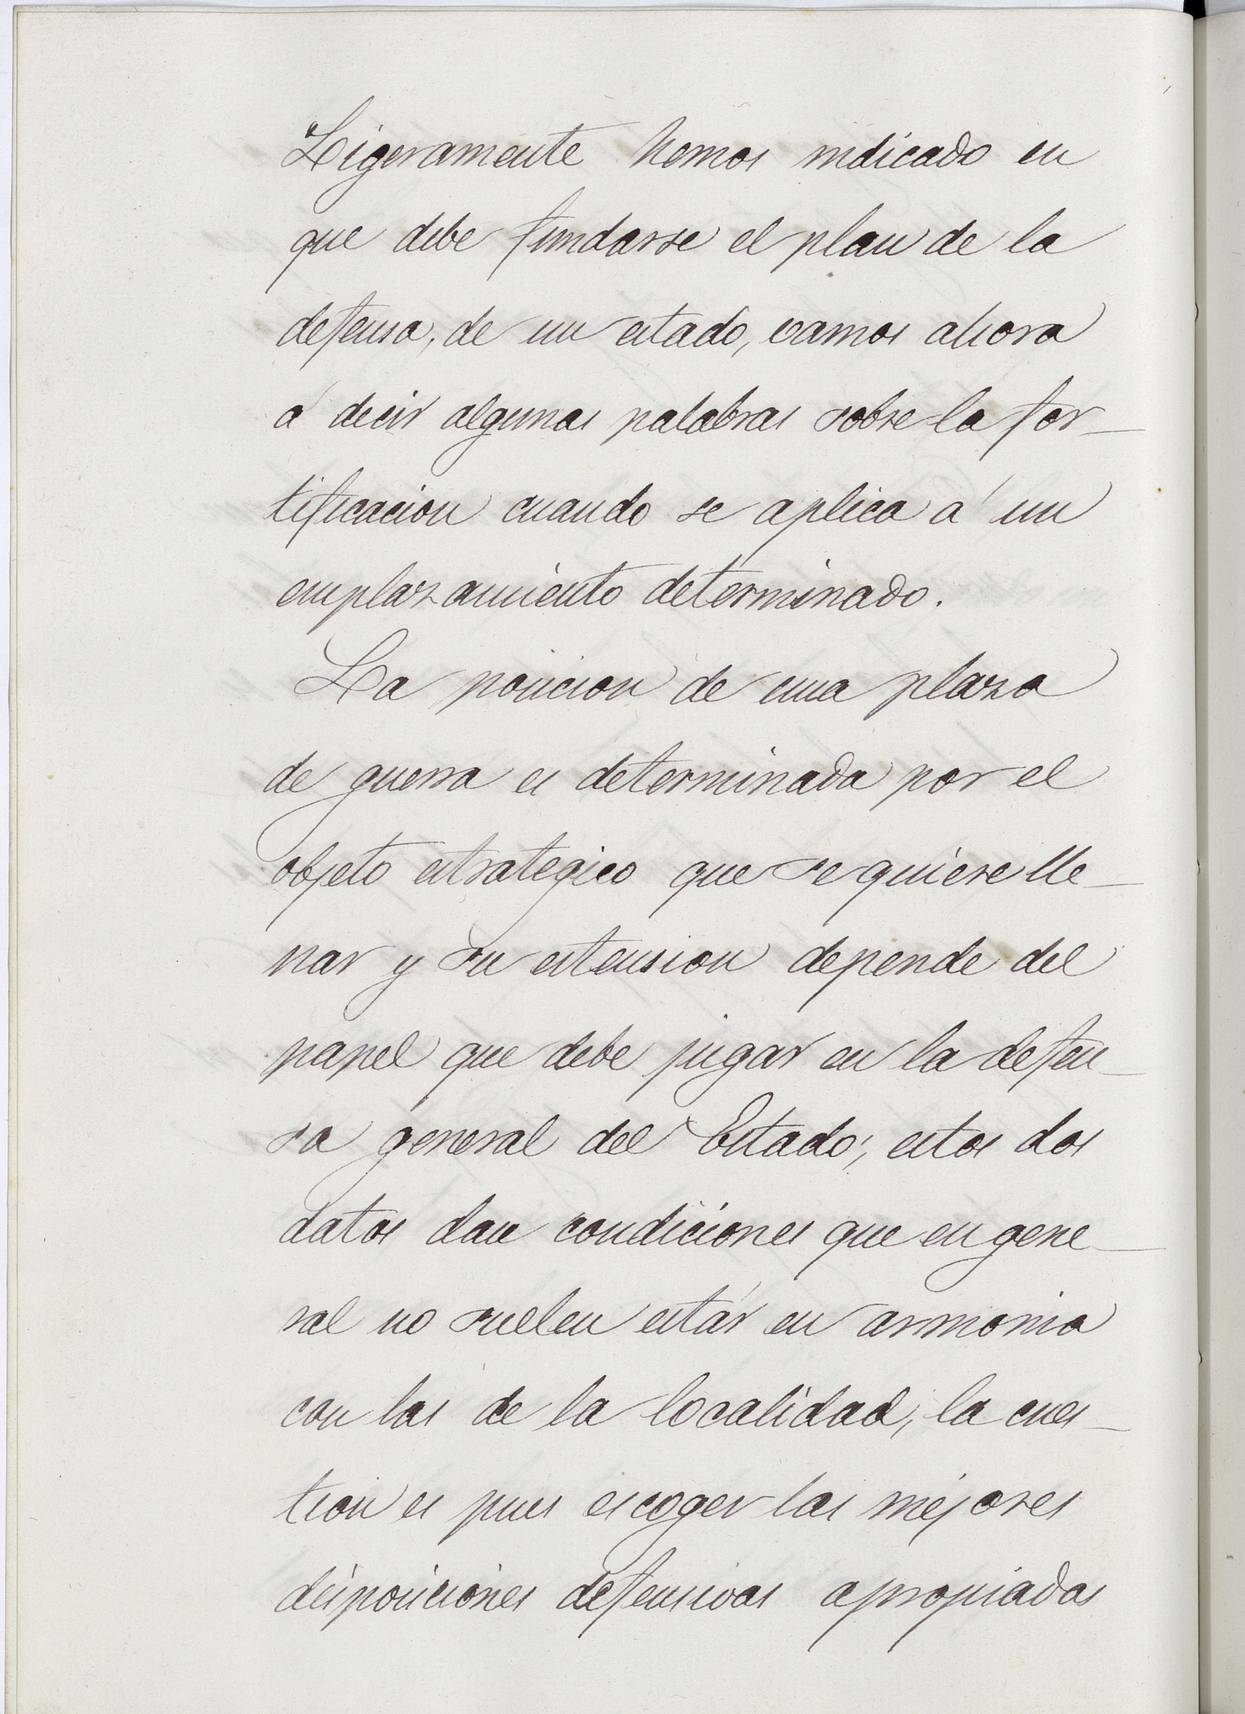 Ligeramente hemos indicado en
que debe fundarse el plan de la
defensa, de un estado, vamos ahora
á decir algunas palabras sobre la for-
tificacion cuando se aplica á un
emplazamiento determinado.
La posicion de una plaza
de guerra es determinada por el
objeto estrategico que se quiere lle-
nar y su estension depende del
papel que debe jugar en la defen-
sa general del Estado; estos dos
datos dan condiciones que en gene-
ral no suelen estár en armonia
con las de la localidad, la cues-
tion es pues escoger las mejores
disposiciones defensivas apropiadas